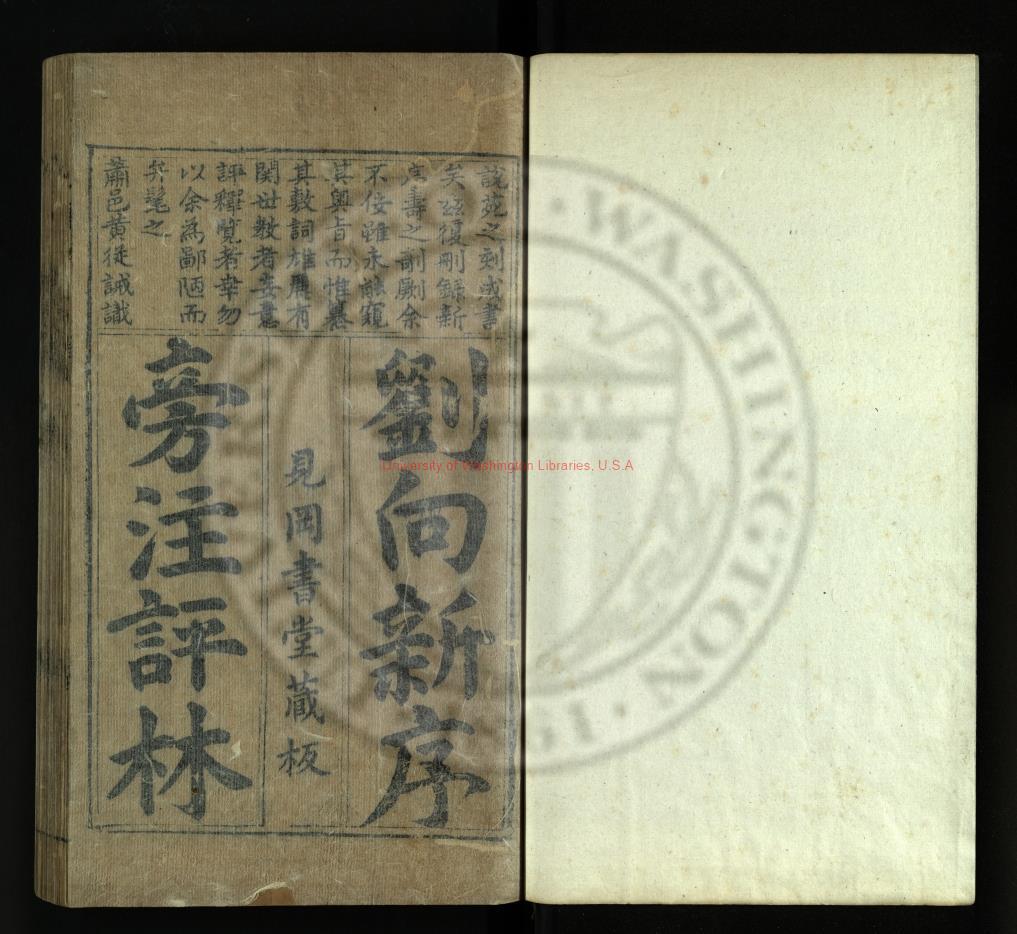 說苑之刻成書
矣茲復刪錄新
序壽之剞劂余
不佞雖未能窺
其奧旨而惟纂
其數詞雄雁有
関世教者妄意
評釋覽者幸勿
以余為鄙陋而
弁髦之
蕭邑黃從誡識
劉向新序
見岡書堂蔵板
旁注評林
University of Washington Libraries, U.S.A
WASHINGTON
1861